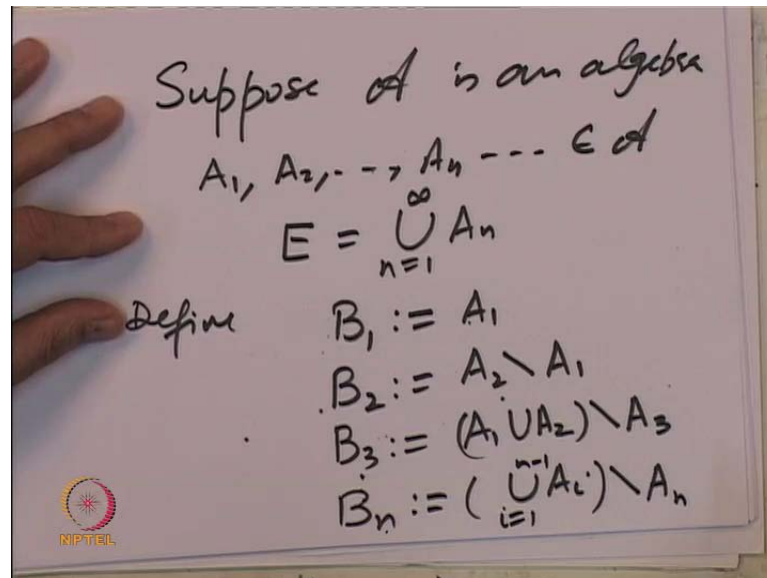 Suppose 𝒜 is an algebra
A₁, A₂, - -, Aₙ - - - ∈ 𝒜
E = ⋃_{n=1}^{∞} Aₙ
Define B₁ := A₁
B₂ := A₂ \ A₁
B₃ := (A₁ ∪ A₂) \ A₃
Bₙ := (⋃_{i=1}^{n-1} Aᵢ) \ Aₙ
NPTEL